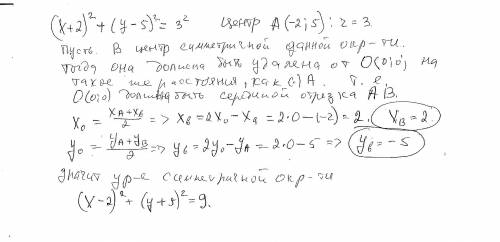 (x+2)²+(y-5)²=3² Центр A(-2;5); r=3.
Пусть. В центр симметричной данной окр-ти.
тогда она должна быть удалена от O(0;0) на
такое же расстояния, как и A. т.е.
O(0;0) должна быть серединой отрезка AB.
x₀ = (x_A+x_B)/2 => x_B=2x₀-x_A=2·0-(-2)=2. x_B=2
y₀ = (y_A+y_B)/2 => y_B=2y₀-y_A=2·0-5 => y_B=-5
Значит ур-е симметричной окр-ти
(x-2)²+(y+5)²=9.